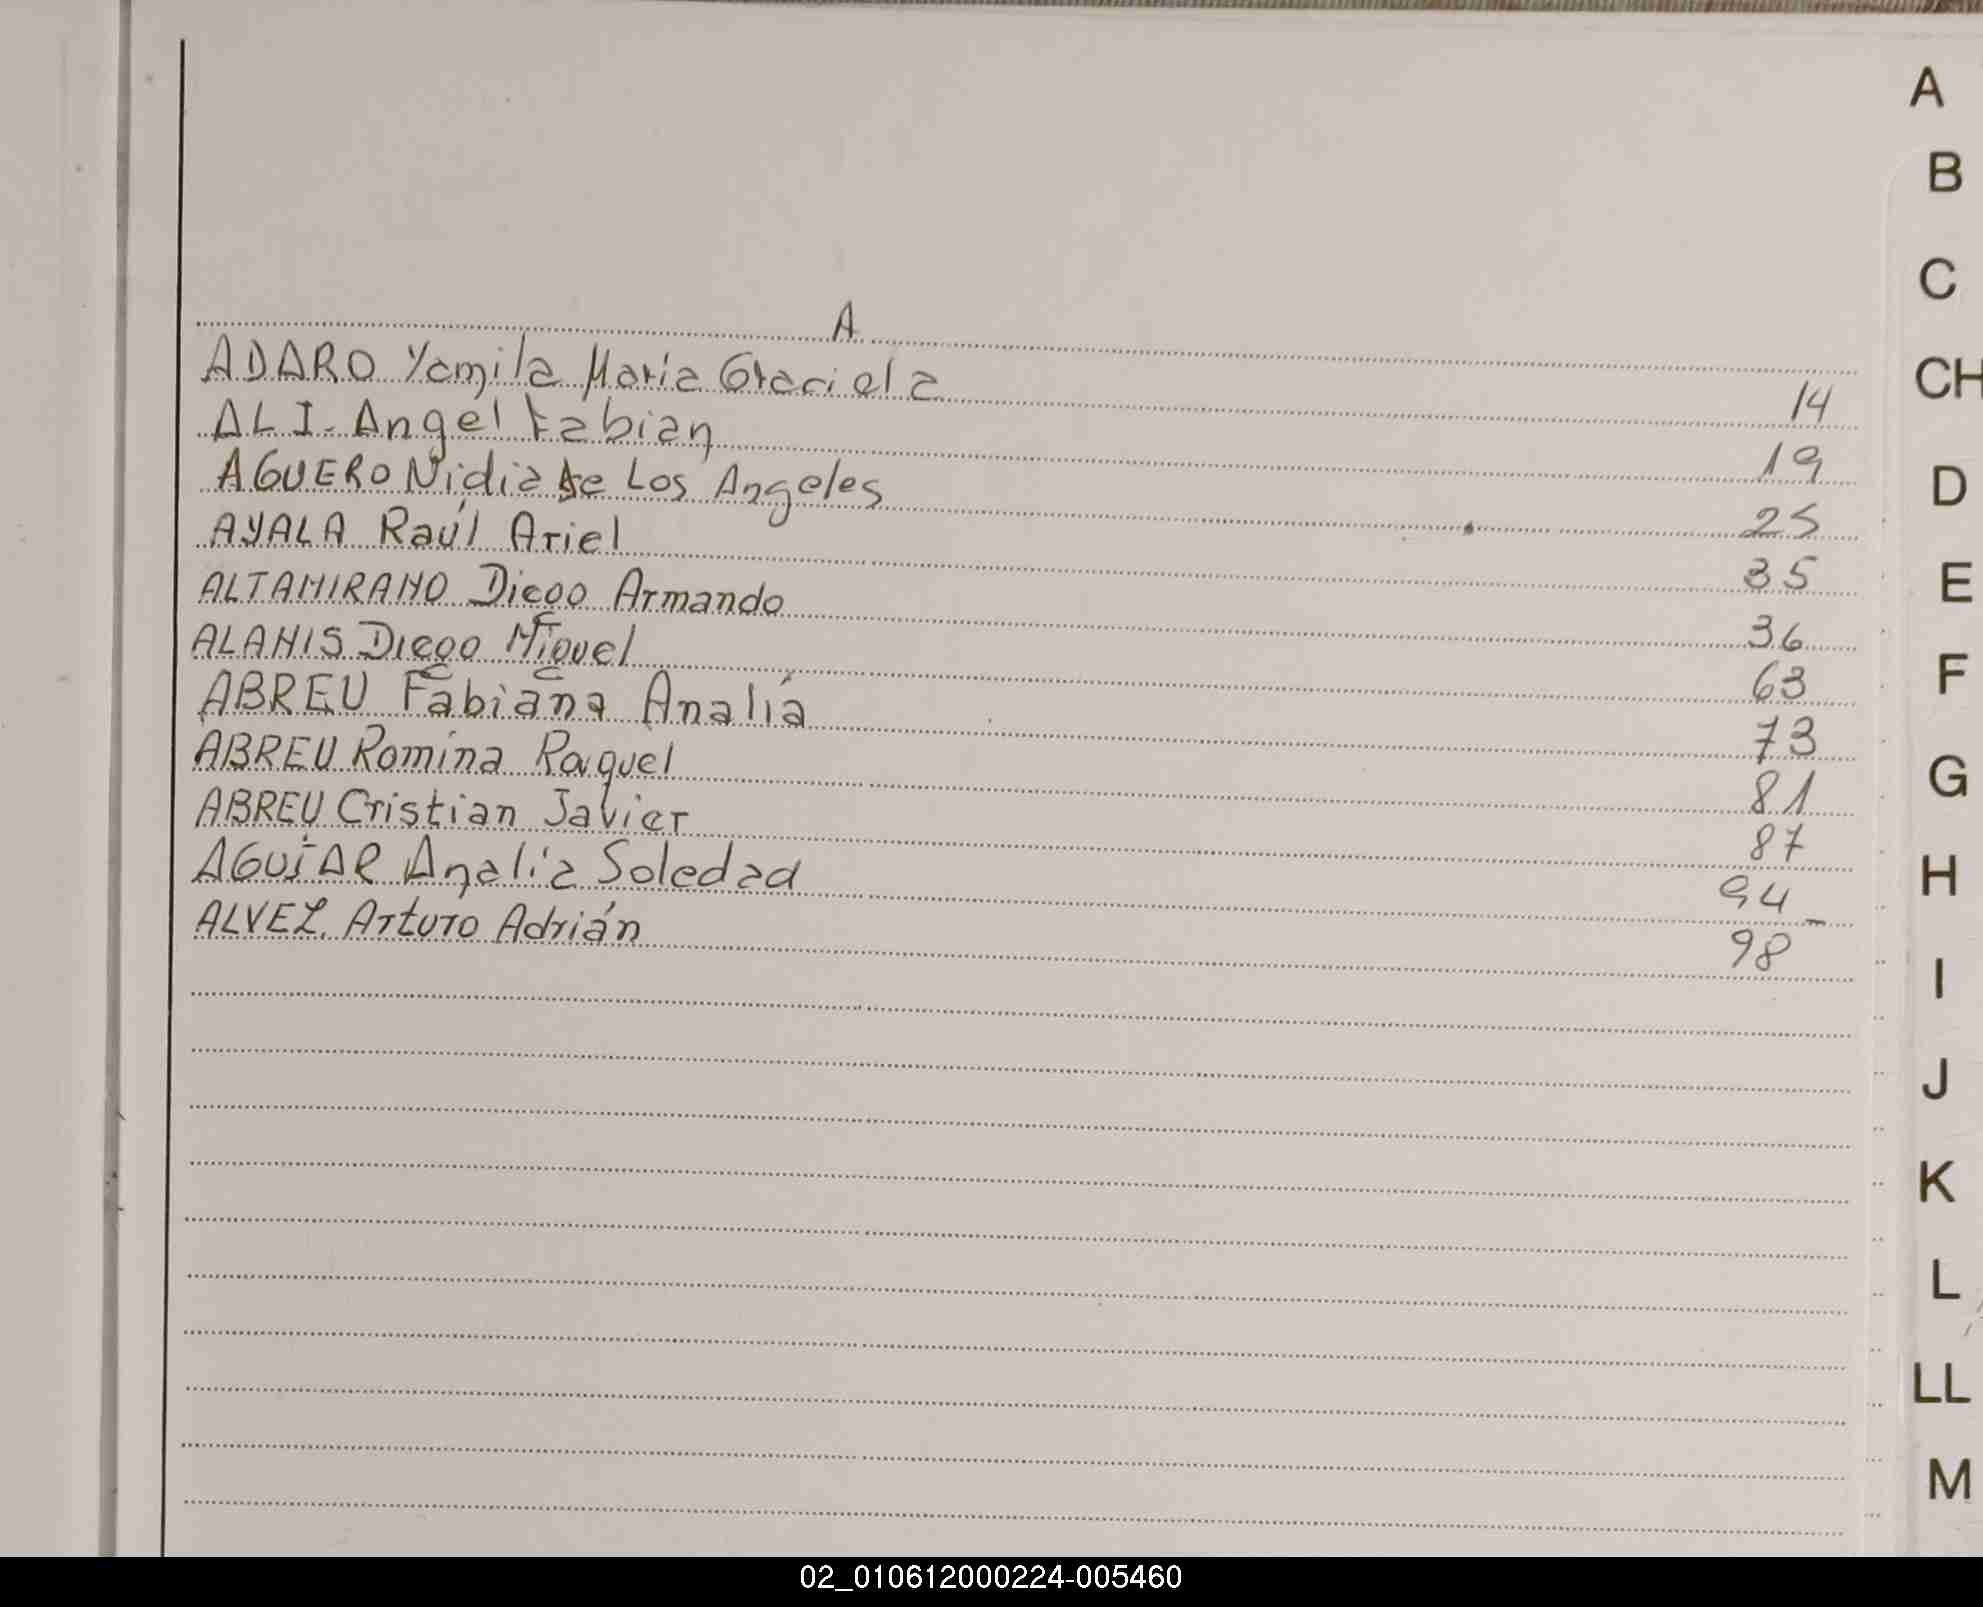 A
ADARO Yamila Maria Graciela 14
ALI. Angel Fabian 19
AGUERO Nidia de Los Angeles 25
AYALA Raúl Ariel 35
ALTAMIRANO Diego Armando 36
ALANIS Diego Miguel 63
ABREU Fabiana Analía 73
ABREU Romina Raquel 81
ABREU Cristian Javier 87
AGUiAR Analia Soledad 94-
ALVEZ. Arturo Adrián 98
A
B
C
CH
D
E
F
G
H
I
J
K
L
LL
M
02_010612000224-005460